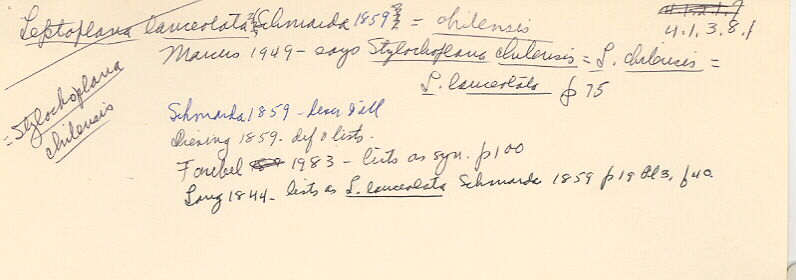 Leptoplana lanceolata (Schmarda 1859) = chilensis
4.1.2.1.7
4.1.3.8.f
Marcus 1949 - says Stylochoplana chilensis = L. chilensis =
L. lanceolata p 75
= Stylochoplana
chilensis
Schmarda 1859 - descr & ill
Diesing 1859. def & lists.
Faubel 1983 - lists as syn. p100
Lang 1844 - lists as L. lanceolata Schmarda 1859 p19 Pl 3, f 40